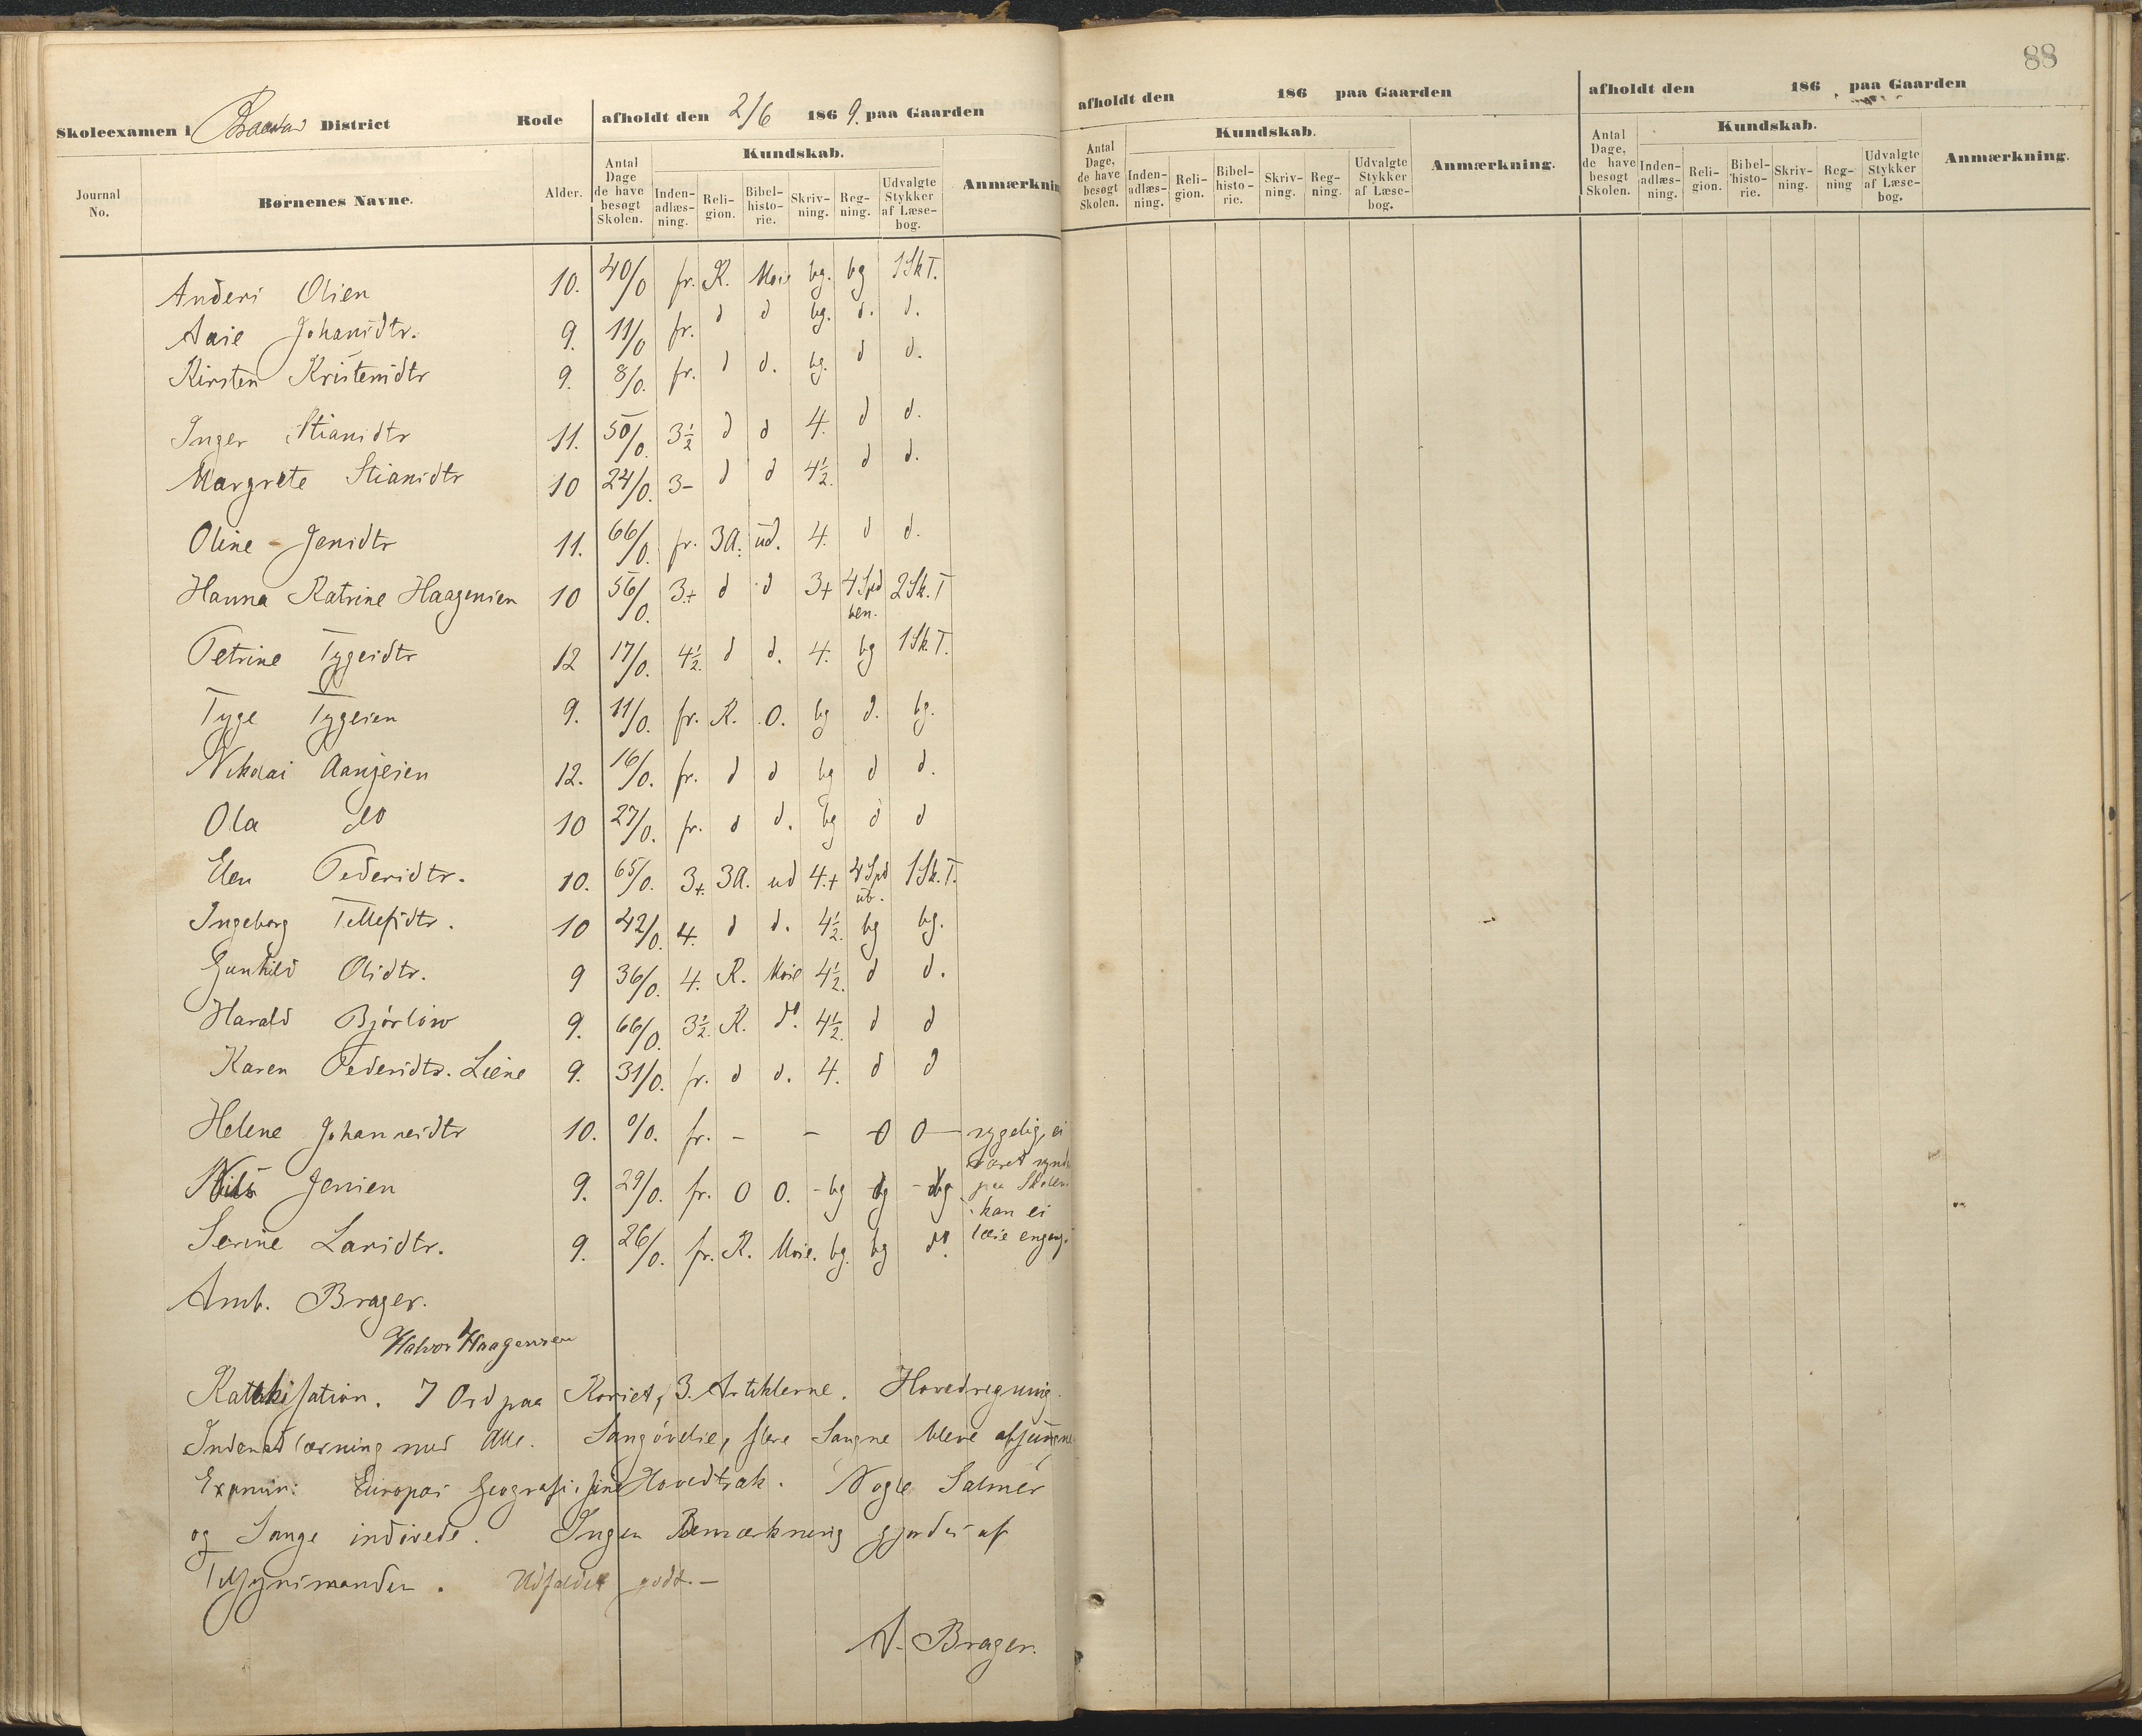 88
Skoleexamen i Braastad District Rode afholdt den 2/6 1869. paa Gaarden
Journal No. Børnenes Navne. Alder. Antal Dage de have besøgt Skolen. Kundskab. Inden-adlæs-ning. Reli-gion. Bibel-histo-rie. Skriv-ning. Reg-ning. Udvalgte Stykker af Læse-bog. Anmærkning
Anders Olsen 10. 40/0 fr. K. Mose bg. bg 1 Sk T.
Aase Johansdtr. 9. 11/0 fr. d d bg. d. d.
Kirsten Kristensdtr 9. 8/0. fr. d d. bg. d d.
Inger Stiansdtr 11. 50/0. 3½ d d 4. d d.
Margrete Stiansdtr 10 24/0. 3- d d 4½. d d.
Oline Jensdtr 11. 66/0. fr. 3A. ud. 4. d d.
Hanna Katrine Haagensen 10 56/0. 3+ d d 3+ 4 Spd ben. 2 Sk. T
Petrine Tygesdtr 12 17/0. 4½. d d. 4. bg 1 Sk T.
Tyge Tygesen 9. 11/0. fr. K. O. bg d. bg.
Nikolai Aanjesen 12. 16/0. fr. d d bg d d.
Ola do 10 27/0. fr. d d. bg d d
Elen Pedersdtr. 10. 65/0. 3+. 3A. ud 4.+ 4 Spd ub. 1 Sk. T.
Ingeborg Tellefsdtr. 10 42/0. 4. d d. 4½. bg bg.
Gunhild Olsdtr. 9 36/0. 4. K. Mose 4½. d d.
Harald Bjørlow 9. 66/0. 3½. K. do. 4½. d d
Karen Pedersdtr. Liene 9. 31/0. fr. d d. 4. d d
Helene Johannesdtr 10. 0/0. fr. - - 0 0 - sygelig, ei
været synd
Nils Jensen 9. 29/0. fr. 0 0. - bg bg - bg paa Skolen
kan ei
Serine Larsdtr. 9. 26/0. fr. K. Mose. bg. bg do. læse engang
Amb. Brager.
Halvor Haagensen
Katekisation. 7 Ord paa Korset, 3. Artiklerne. Hovedregning.
Indenadlæsning med Alle. Sangøvelse, flere Sangne bleve afsungne
Examin: Europas Geografi i sine Hovedtræk. Nogle Salmer
og Sange indøvede. Ingen Bemærkning gjordes af
Tilsynsmanden. Udfaldet godt. -
A. Brager.
afholdt den 186 paa Gaarden
Antal Dage, de have besøgt Skolen. Kundskab. Inden-adlæs-ning. Reli-gion. Bibel-histo-rie. Skriv-ning. Reg-ning. Udvalgte Stykker af Læse-bog. Anmærkning.
afholdt den 186 paa Gaarden
Antal Dage, de have besøgt Skolen. Kundskab. Inden-adlæs-ning. Reli-gion. Bibel-histo-rie. Skriv-ning. Reg-ning Udvalgte Stykker af Læse-bog. Anmærkning.